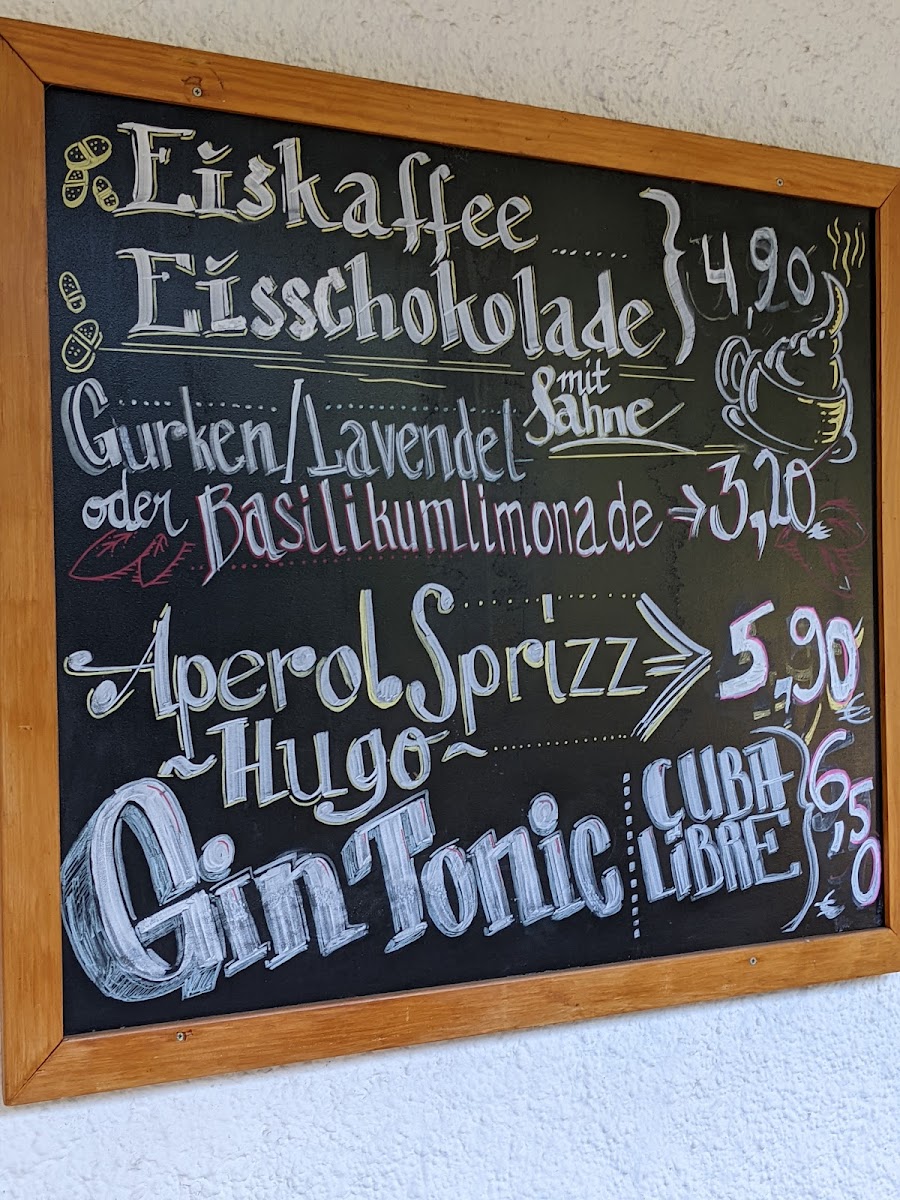 Eiskaffee ...... } 4,90
Eisschokolade
mit
Sahne
Gurken/Lavendel
oder Basilikumlimonade → 3,20 €
Aperol Sprizz 5,90 €
~Hugo~
Gin Tonic CUBA LiBRE } 6,50 €